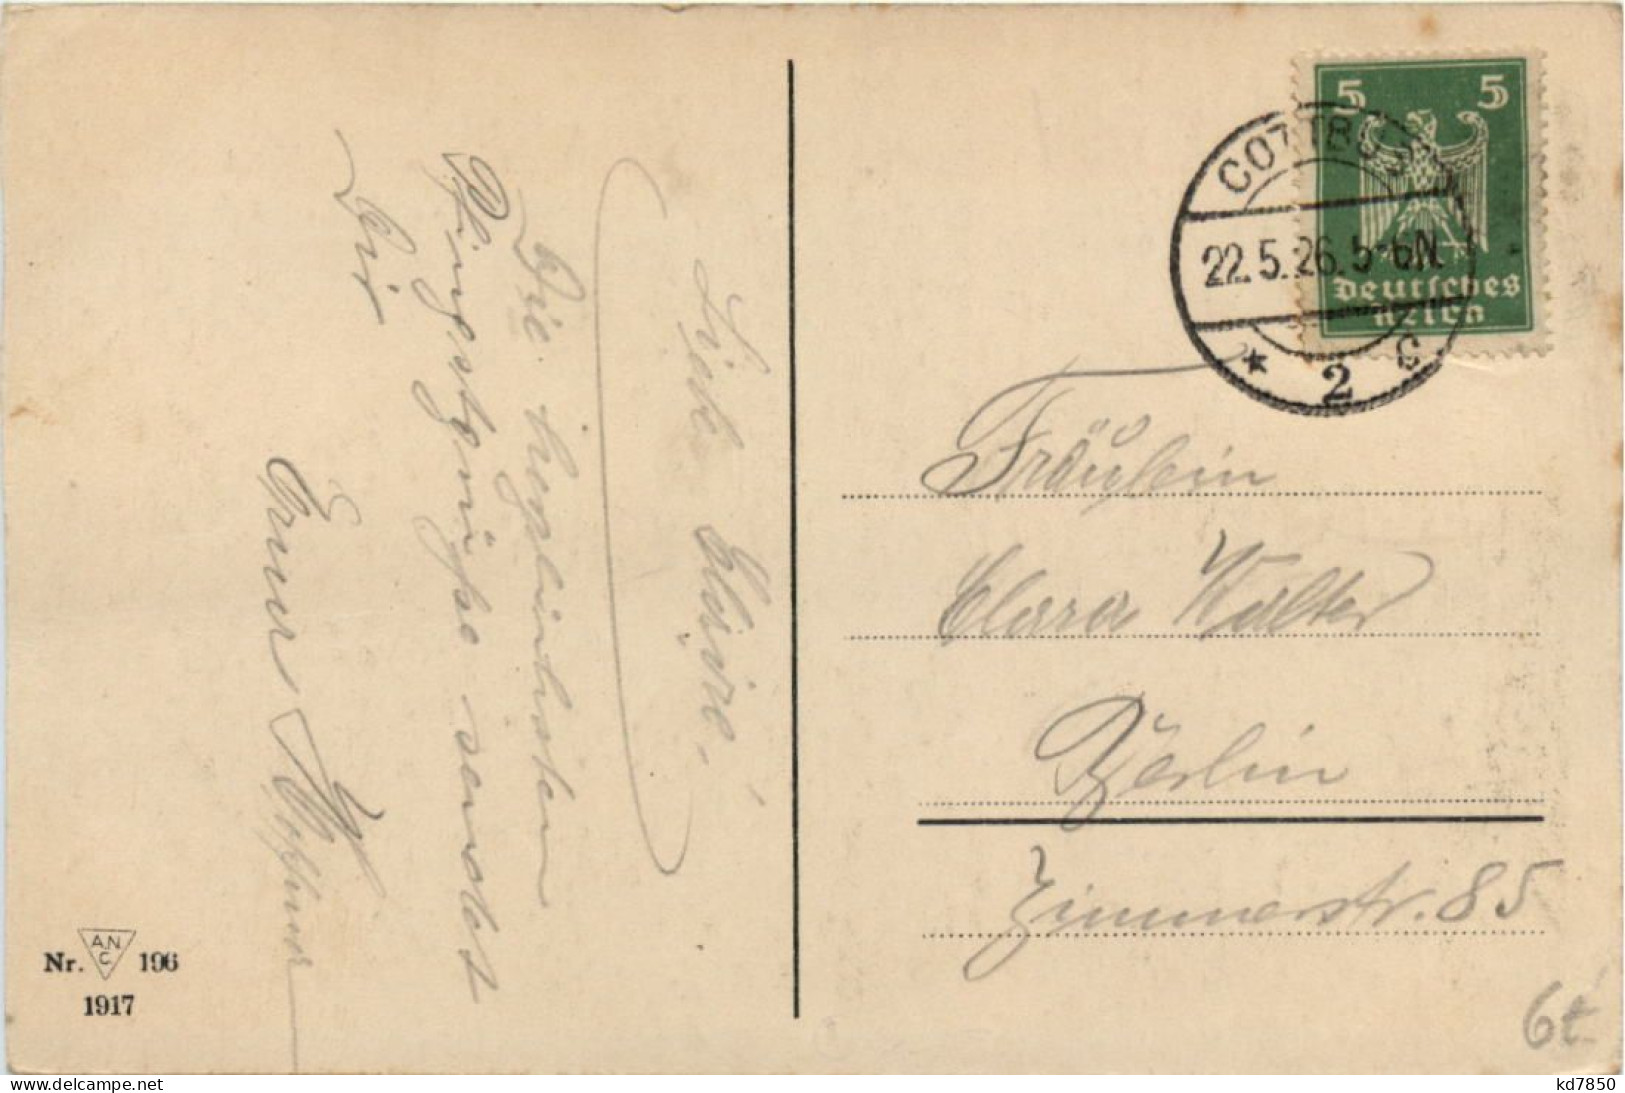 Liebe
Die herzlichsten
Pfingstgrüße sendet
Dir
Nr. A.N.C. 196
1917
5 5
Deutsches
Reich
COTTBUS
22.5.26. 5-6N.
* 2 c
Fräulein
Clara Walter
Berlin
Zimmerstr. 85
6t
delcampe.net
kd7850